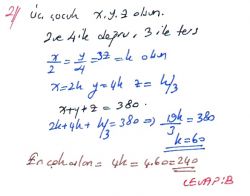 2) Üç çocuk x, y, z olsun.
2 ve 4 ile doğru, 3 ile ters
x/2 = y/4 = 3z = k olsun
x=2k y=4k z = k/3
x+y+z = 380
2k+4k+k/3 = 380 ⇒ 19k/3 = 380
k=60
En çok alan = 4k = 4.60 = 240
CEVAP:B